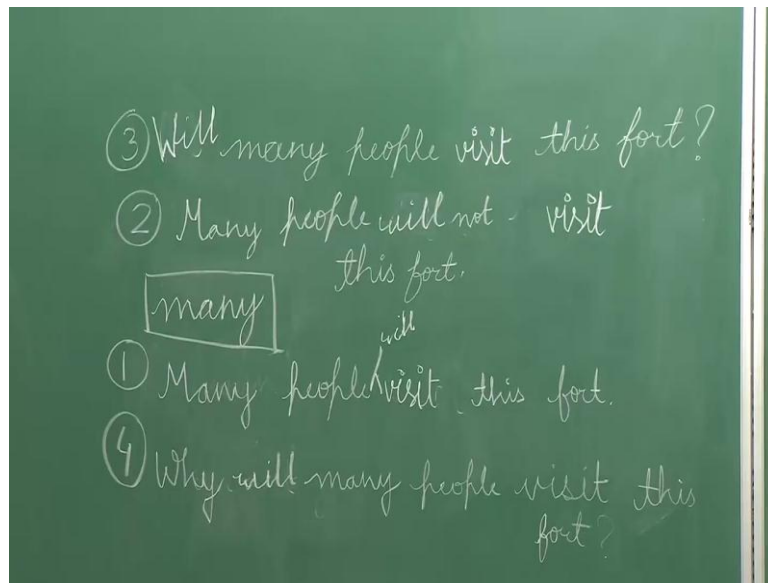 ③ Will many people visit this fort?
② Many people will not visit
this fort.
many
will
① Many people visit this fort.
④ Why will many people visit this
fort?